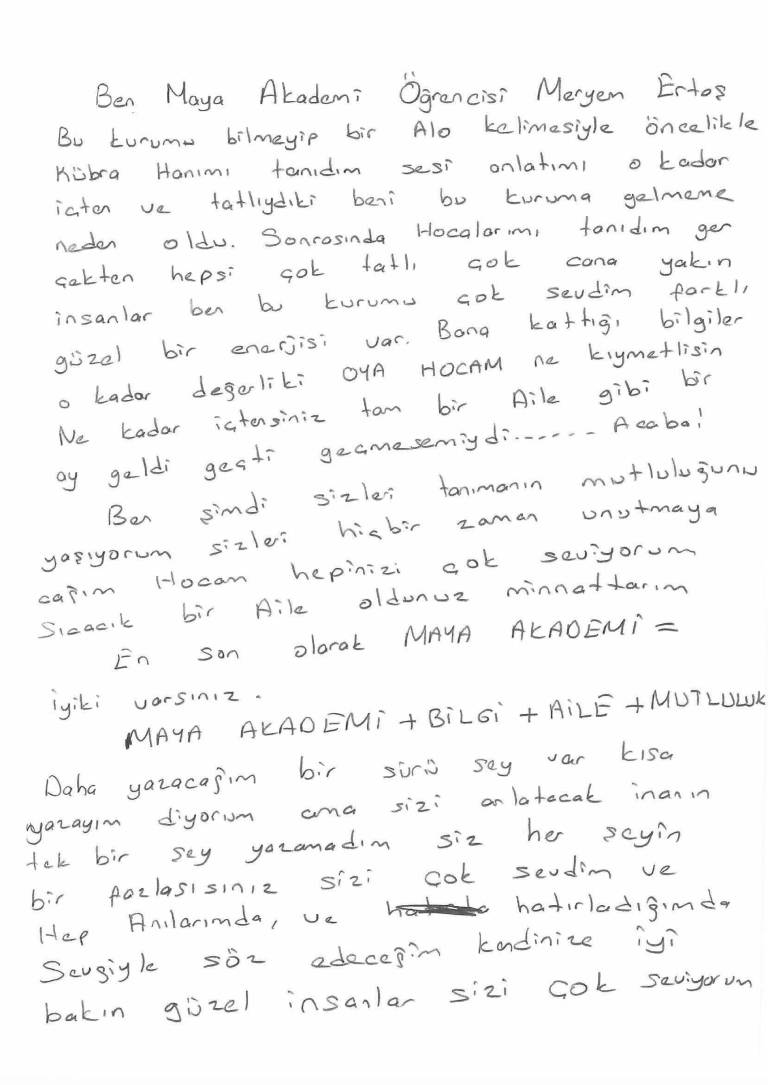 Ben Maya Akademi Öğrencisi Meryem Ertaş
Bu kurumu bilmeyip bir Alo kelimesiyle öncelikle
Kübra Hanımı tanıdım sesi anlatımı o kadar
içten ve tatlıydıki beni bu kuruma gelmeme
neden oldu. Sonrasında Hocalarımı tanıdım ger
çekten hepsi çok tatlı çok cana yakın
insanlar ben bu kurumu çok sevdim farklı
güzel bir enerjisi var. Bana kattığı bilgiler
o kadar değerliki OYA HOCAM ne kıymetlisin
Ne kadar içtensiniz tam bir Aile gibi bir
ay geldi geçti geçmesemiydi...... Acaba!
Ben şimdi sizleri tanımanın mutluluğunu
yaşıyorum sizleri hiçbir zaman unutmaya
cağım Hocam hepinizi çok seviyorum
Sıcacık bir Aile oldunuz minnattarım
En son olarak MAYA AKADEMİ =
iyiki varsınız.
MAYA AKADEMİ + BİLGİ + AİLE + MUTLULUK
Daha yazacağım bir sürü sey var kısa
yazayım diyorum ama sizi anlatacak inanın
tek bir sey yazamadım siz her seyin
bir fazlasısınız sizi çok sevdim ve
Hep Anılarımda, ve hatırladığımda
Sevgiyle söz edeceğim kendinize iyi
bakın güzel insanlar sizi çok seviyorum